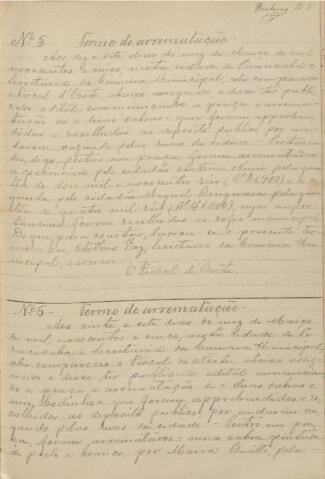 Nº 5 Termo de arrematação
Aos dez e sete dias do mez de Março de mil
novecentos e cinco, nesta cidade de
Secretaria da Camara Municipal, ahi compareceu
o Fiscal d'Oéste, abaixo assignado e disse ter publi-
cado edital annunciando a praça e arrema-
tação de cabras que foram apprehen-
didas e recolhidas ao deposito publico por an-
darem vagando pelas ruas da cidade
digo, postas em praça, foram arrematadas
a primeira pelo cidadão Antonio pela quan-
tia de dois mil e novecentos reis (Rs 2$900) e a se-
gunda pelo cidadão Miguel pela quan-
tia de quatro mil reis (Rs 4$000), cujas impor-
tancias foram recolhidas ao cofre municipal
Do que para constar, lavrou-se o presente ter-
mo. Eu, Vaz, Secretario da Camara Mu-
nicipal, escrevi
O Fiscal d'Oéste,
Nº 6 Termo de arrematação
Aos vinte e sete dias do mez de Março
de mil novecentos e cinco, nesta cidade de
e Secretaria da Camara Municipal,
ahi compareceu o Fiscal do Norte, abaixo assig-
nado e disse ter publicado edital annuncian-
do a praça e arrematação de duas cabras e
um bodinho que foram apprehendidos e re-
colhidos ao deposito publico, por andarem va-
gando pelas ruas da cidade. Postos em pra-
ça, foram arrematados uma cabra
de preto e branco, por Maria pela